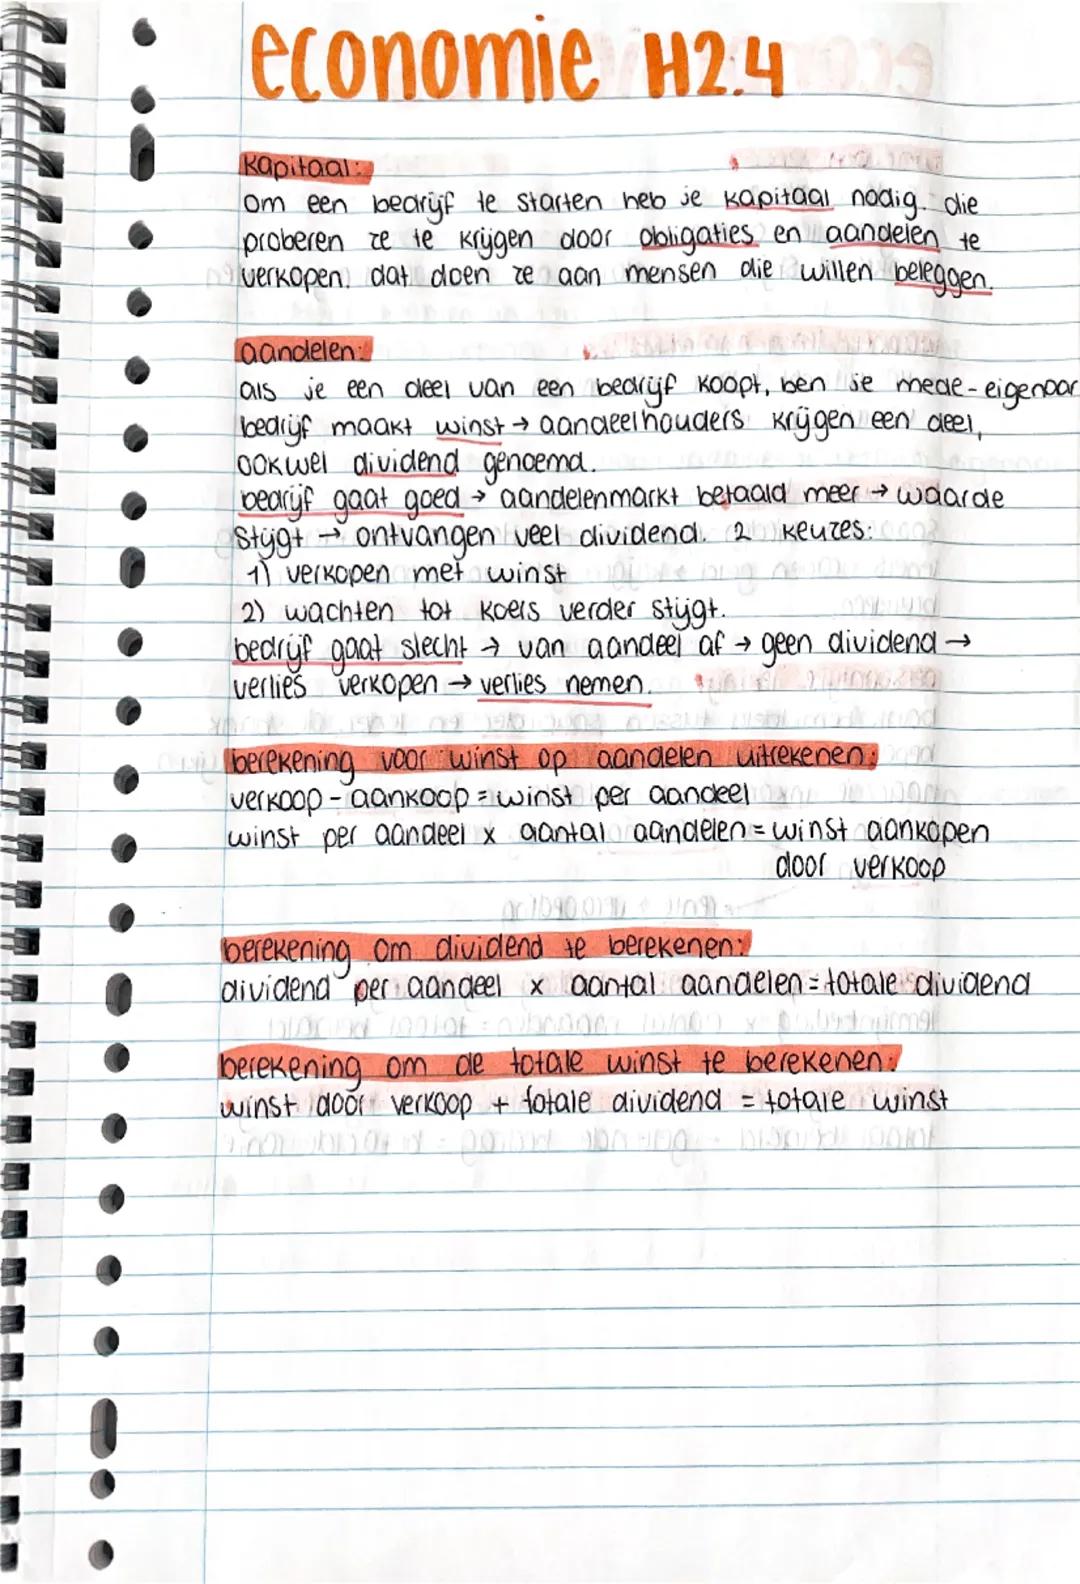 economie H2.4
kapitaal:
om een bedrijf te starten heb je kapitaal nodig. die
proberen ze te krijgen door obligaties en aandelen te
verkopen. dat doen ze aan mensen die willen beleggen.
aandelen:
als je een deel van een bedrijf koopt, ben je mede-eigenaar
bedrijf maakt winst → aandeelhouders krijgen een deel,
ookwel dividend genoemd.
bedrijf gaat goed → aandelenmarkt betaald meer → waarde
stijgt → ontvangen veel dividend. 2 keuzes:
1) verkopen met winst
2) wachten tot koers verder stijgt.
bedrijf gaat slecht → van aandeel af → geen dividend →
verlies verkopen → verlies nemen.
berekening voor winst op aandelen uitrekenen:
verkoop - aankoop = winst per aandeel
winst per aandeel x aantal aandelen = winst aankopen
door verkoop
berekening om dividend te berekenen:
dividend per aandeel x aantal aandelen = totale dividend
berekening om de totale winst te berekenen:
winst door verkoop + totale dividend = totale winst